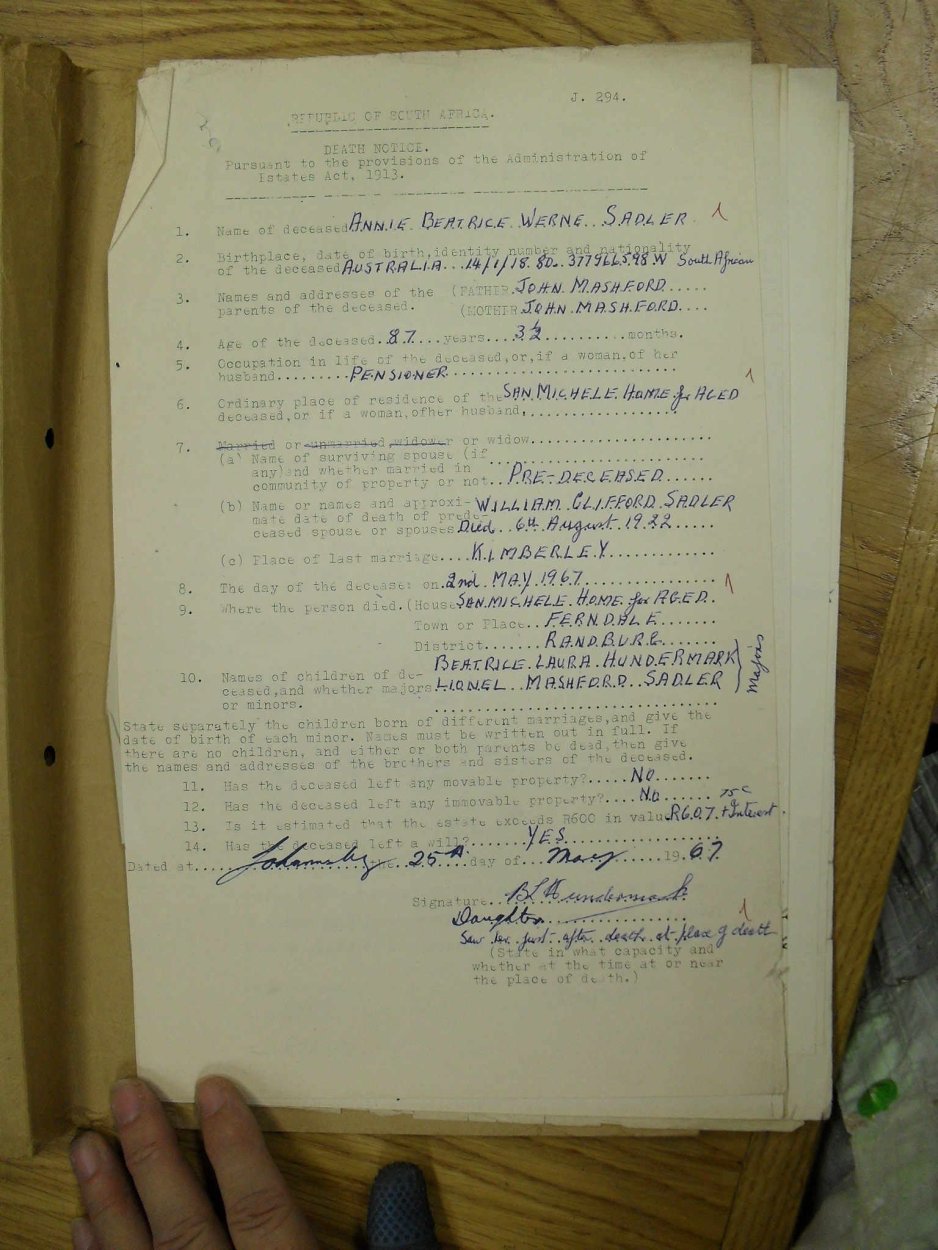 J. 294.
REPUBLIC OF SOUTH AFRICA.
DEATH NOTICE.
Pursuant to the provisions of the Administration of
Estates Act, 1913.
1. Name of deceased ANNIE BEATRICE WERNE SADLER
2. Birthplace, date of birth, identity number and nationality
of the deceased AUSTRALIA... 14/1/18.80.. 377966598 W South African
3. Names and addresses of the (FATHER. JOHN MASHFORD......
parents of the deceased. (MOTHER JOHN MASHFORD....
4. Age of the deceased. 87....years....3½..........months.
5. Occupation in life of the deceased,or,if a woman,of her
husband.........PENSIONER..............................
6. Ordinary place of residence of the SAN MICHELE HOME for AGED
deceased,or if a woman,ofher husband,...................
7. Married or unmarried,widower or widow.......................
(a) Name of surviving spouse (if ..............................
any)and whether married in
community of property or not.. PRE-DECEASED......
(b) Name or names and approxi- WILLIAM CLIFFORD SADLER
mate date of death of prede-
ceased spouse or spouses Died.. 6th August 1922.....
(c) Place of last marriage.... KIMBERLEY.............
8. The day of the decease: on 2nd MAY 1967...............
9. Where the person died.(House SAN MICHELE HOME for AGED..
Town or Place.. FERNDALE.......
District....... RANDBURG.......
BEATRICE LAURA HUNDERMARK
10. Names of children of de-
ceased,and whether majors LIONEL MASHFORD SADLER Majors
or minors. ......................................
State separately the children born of different marriages,and give the
date of birth of each minor. Names must be written out in full. If
there are no children, and either or both parents be dead,then give
the names and addresses of the brothers and sisters of the deceased.
11. Has the deceased left any movable property?..... No........
12. Has the deceased left any immovable property?.... No.......
13. Is it estimated that the estate exceeds R600 in value R607. 75c + Interest
14. Has the deceased left a will?....... YES...................
Dated at.... the 25th day of... May...... 19.67.
Signature.. BL Hundermark
Daughter...................
Saw her just after death at place of death
(State in what capacity and
whether at the time at or near
the place of death.)